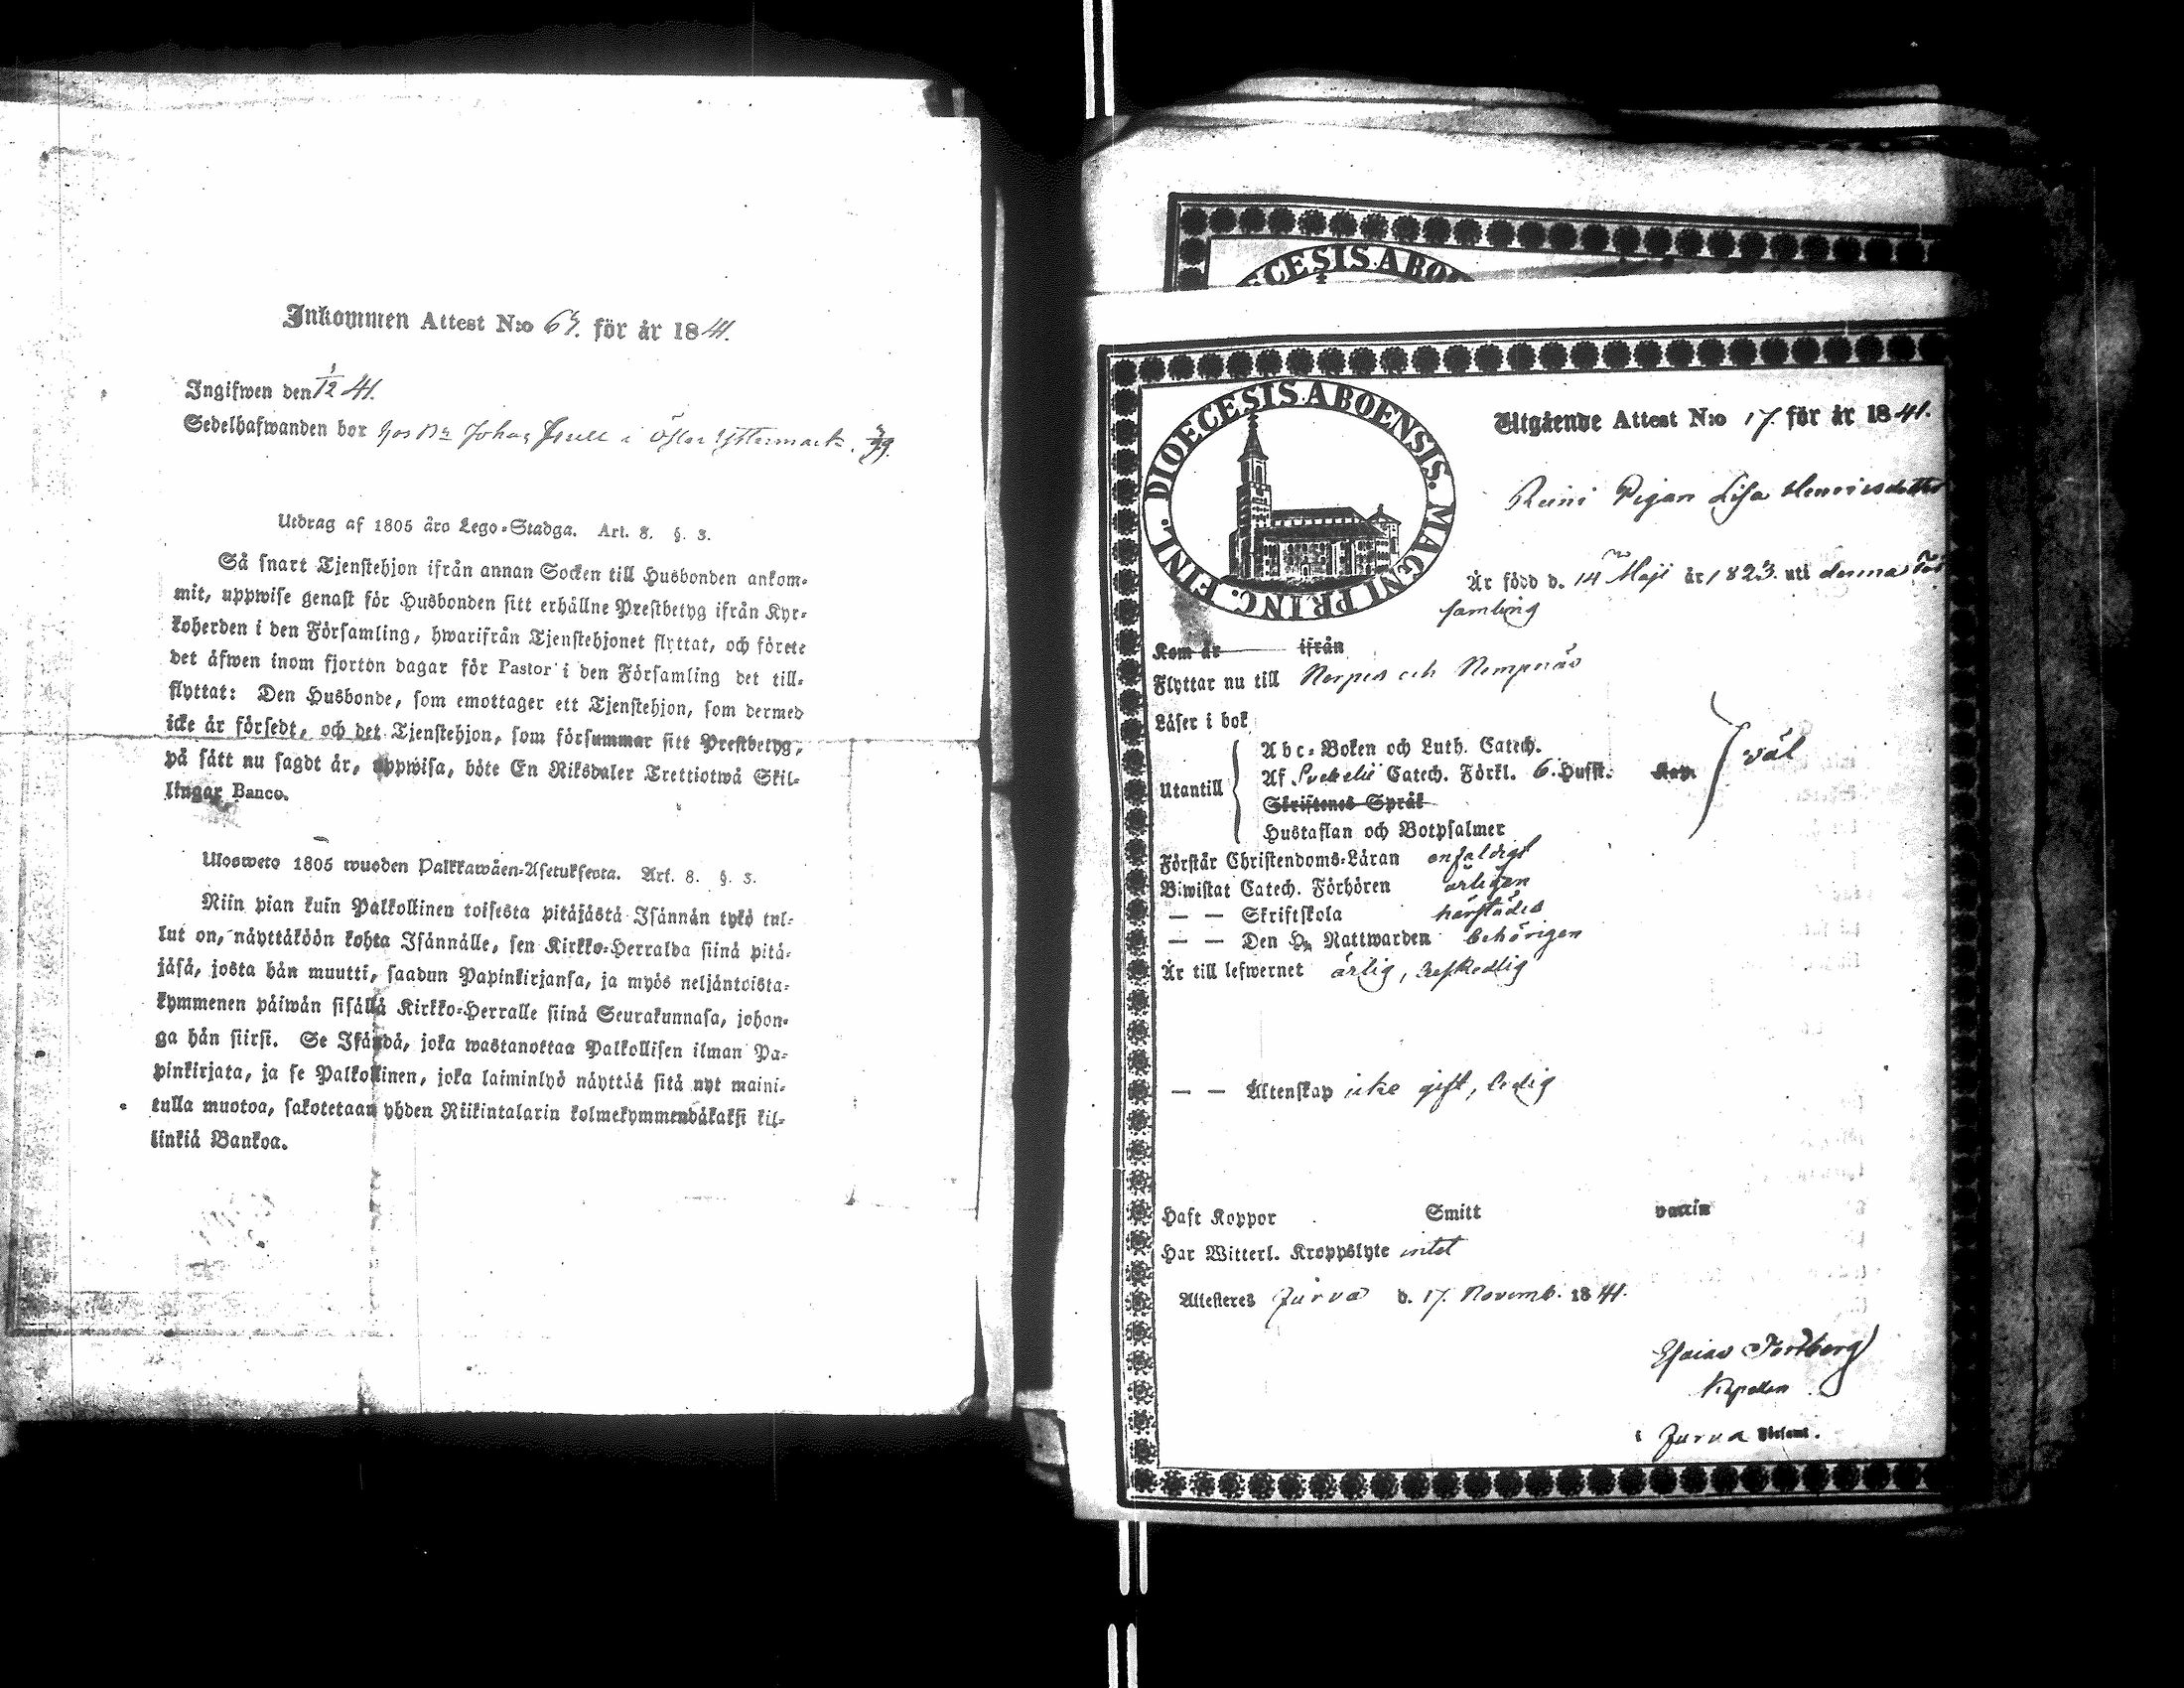 Inkommen Attest N:o 67. för år 1841.
Ingifwen den 1/12 41.
Sedelhafwanden bor hos Bn Johan i Öster Yttermark.
Utdrag af 1805 åro Lego-Stadga. Art. 8. §. 3.
Så snart Tjenstehjon ifrån annan Socken till Husbonden ankom-
mit, uppwise genast för Husbonden sitt erhållne Prestbetyg ifrån Kyr-
koherden i den Församling, hwarifrån Tjenstehjonet flyttat, och förete
det äfwen inom fjorton dagar för Pastor i den Församling det till-
flyttat: Den Husbonde, som emottager ett Tjenstehjon, som dermed
icke är försedt, och det Tjenstehjon, som försummar sitt Prestbetyg,
på sätt nu sagdt är, uppwisa, böte En Riksdaler Trettiotwå Skil-
lingar Banco.
Ulosweto 1805 wuoden Palkkawäen-Asetuksesta. Art. 8. §. 3.
Niin pian kuin Palkollinen toisesta pitäjästä Isännän tykö tul-
lut on, näyttäköön kohta Isännälle, sen Kirkko-Herralda siinä pitä-
jäsä, josta hän muutti, saadun Papinkirjansa, ja myös neljäntoista-
kymmenen päiwän sisällä Kirkko-Herralle siinä Seurakunnasa, johon-
ga hän siirsi. Se Isändä, joka wastanottaa Palkollisen ilman Pa-
pinkirjata, ja se Palkollinen, joka laiminlyö näyttää sitä nyt maini-
tulla muotoa, sakotetaan yhden Riikintalarin kolmekymmendäkaksi kil-
linkiä Bankoa.
ECESIS ABO
DIOECESIS ABOENSIS. MAGNI PRINC. FINL.
Utgående Attest N:o 17. för år 1841.
Pigan Lisa Henricsdotter
Är född d. 14 Maji år 1823. uti denna För
samling
Kom år ifrån
Flyttar nu till Nerpes och Nempnäs
Läser i bok
Utantill
Abc-Boken och Luth. Catech.
Af Svebelii Catech. Förkl. 6. Hufst. Kap.
Skriftenes Språk
Hustaflan och Botpsalmer
väl
Förstår Christendoms-Läran enfaldigt
Biwistat Catech. Förhören årligen
— — Skriftskola härstädes
— — Den H. Nattwarden behörigen
Är till lefwernet ärlig, beskedlig
— — Äktenskap icke gift, ledig
Haft Koppor Smitt vaccin
Har Witterl. Kroppslyte intet
Attesteres Jurva d. 17. Novemb. 1841.
Esaias
Kapellan
i Jurva Församl.